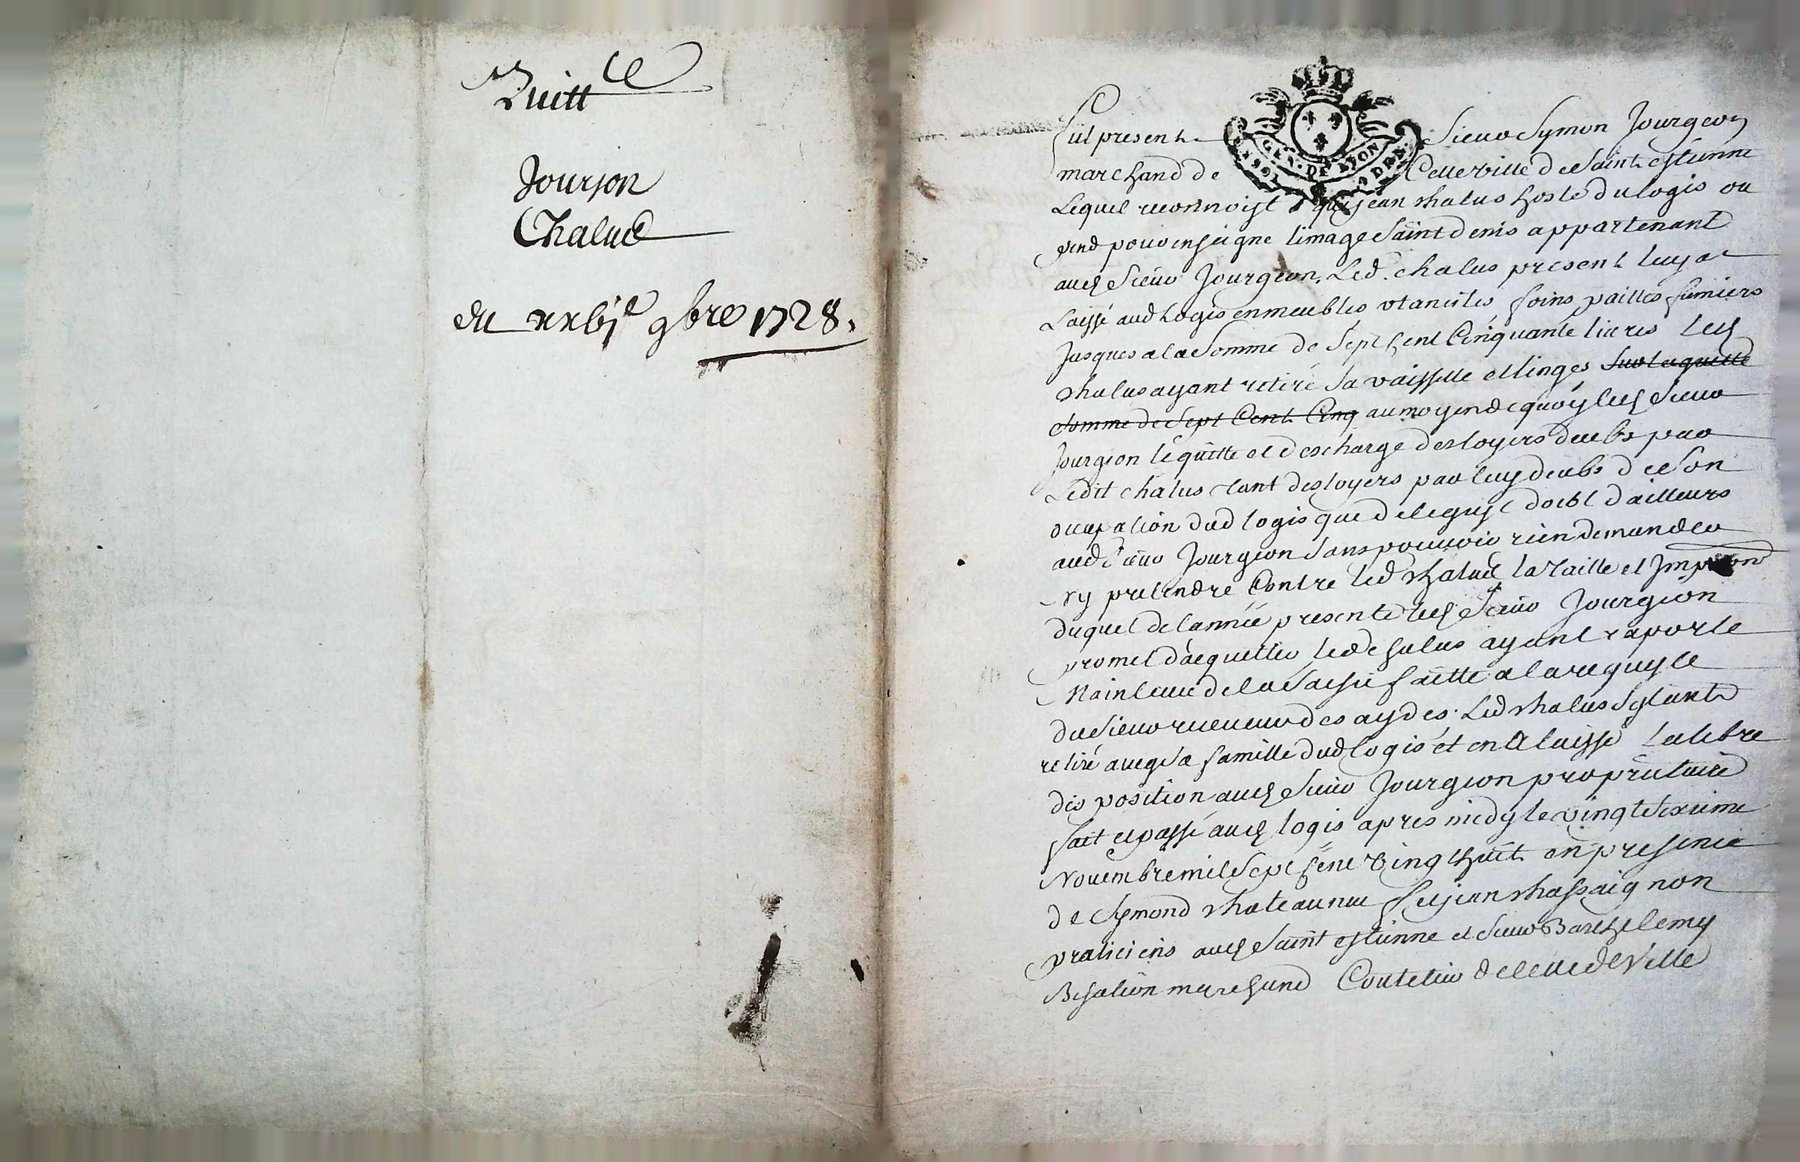 Quittce
Jourjon
Chalud
du xxbje 9bre 1728.
GEN. DE LYON
Fut present Sieur Symon Jourgeon
marchand de Cette ville de Saint estienne
Lequel reconnoist que jean chalus hoste du logis ou
pend pour enseigne limage Saint denis appartenant
aud Sieur Jourgeon, Led. chalus present luy a
Laissé aud Logis en meubles utancites foins pailles fumiers
Jusques a la Somme de Sept Cent Cinquante livres Led
chalus ayant retiré sa vaisselle et linges Sur laquelle
Somme de Sept Cent Cinq au moyen de quoy led Sieur
Jourgeon le quitte et descharge des loyers deubs par
Ledit chalus tant des loyers par luy deubs de Son
occupation dud logis que de ce quil doibt dailleurs
aud Sieur Jourgeon Sans pouvoir rien demander
ny pretendre Contre led chalus la taille et
duquel de lannée presente led Sieur Jourgeon
promet dacquitter led chalus ayant raporté
Mainlevée de la Saisie faitte a la requeste
du Sieur receveur des aydes. Led chalus Sestant
retiré avec Sa famille dud logis et en a laissé La libre
disposition aud Sieur Jourgeon proprietaire
fait et passé aud logis apres midy le vingt Sixieme
Novembre mil Sept Cent vingt huit en presence
de Symond chateauneuf et jean chassaignon
praticiens aud Saint estienne et Sieur Barthelemy
marchand Coutelier de cette de Ville